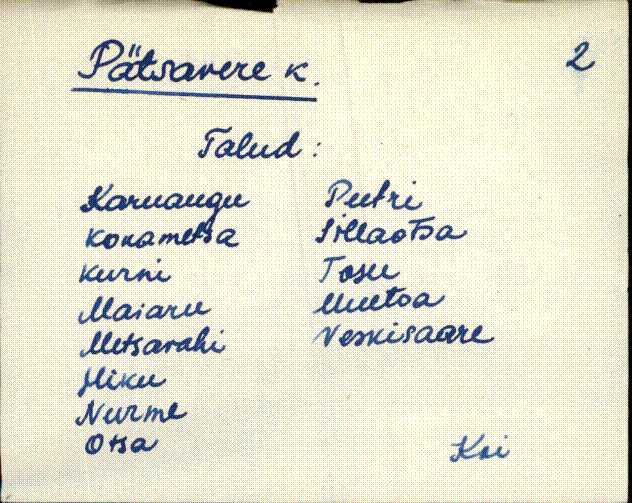 Pätsavere k.
2
Talud:
Karuaugu
Konametsa
Kurni
Maiaru
Metsavahi
Miku
Nurme
Otsa
Peetri
Sillaotsa
Tosu
Uuetoa
Veskisaare
Koi